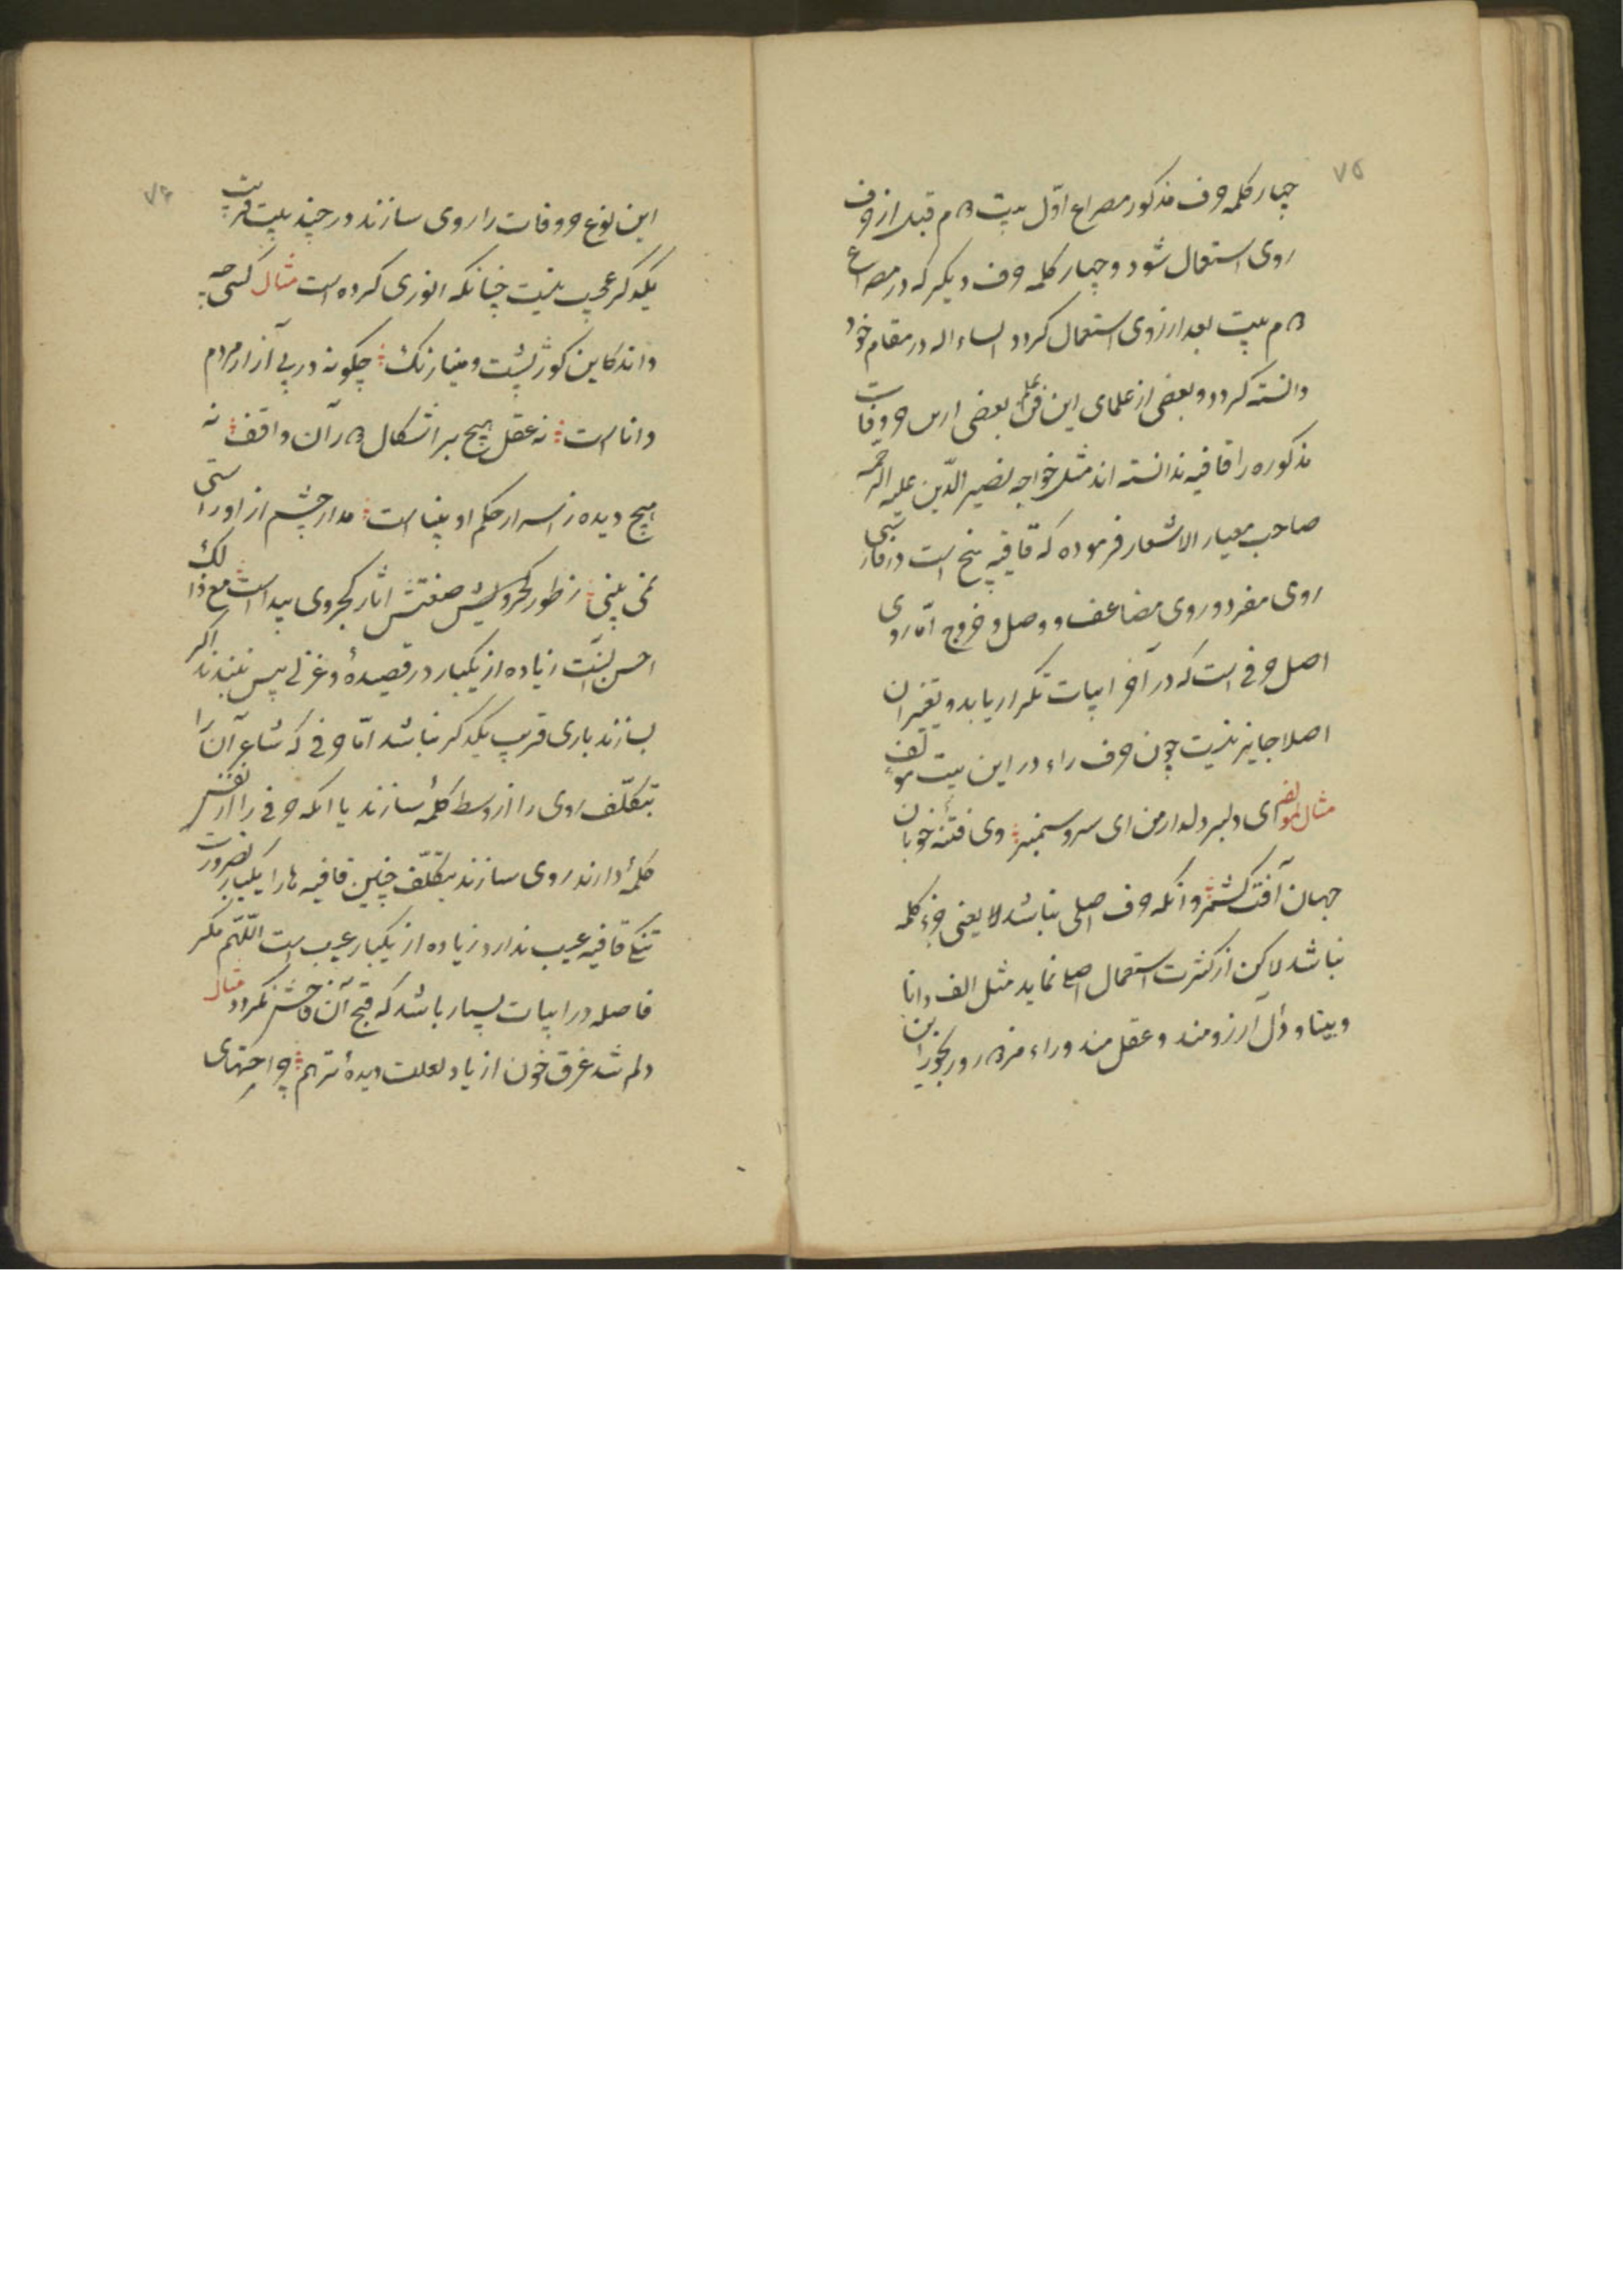 ۷۵
چهار کلمه حرف مذکور مصراع اوّل بیت دهم قبل از حرف
روی استعمال شود و چهار کلمه حرف دیگر که در مصراع
دوم بیت بعد از روی استعمال کردد انشاء الله در مقام خود
دانسته کردد و بعضی از علمای این فن بعضی از حروفات
مذکوره را قافیه ندانسته اند مثل خواجه نصیر الدّین علیه الرحمه
صاحب معیار الاشعار فرموده که قافیه پنج است در فارسی
روی مفرد و روی مضاعف و وصل و خروج امّا روی
اصل حرفی است که در آخر ابیات تکرار یابد و تغیر ان
اصلا جایز نیست چون حرف راء در این بیت مؤلف
مثال لمؤلفه ای دلبر دلدار من ای سرو سیمنبر وی فتنهٔ خوبان
جهان آفت کشمر و انکه حرف اصلی نباشد لا یعنی جزء کلمه
نباشد لاکن از کثرت استعمال اصلی نماید مثل الف دانا
و بینا و دال آرزومند و عقل مند و راء مزدور و رنجور این
۷۶
این نوع حروفات را روی سازند در چند بیت قریب
یکدکر عیب نیست چنانکه انوری کرده است مثال کسی چه
داند کاین کوژپشت مینا رنک چکونه در پی آزار مردم
دانا است نه عقل هیچ بر اشکال دور آن واقف نه
هیچ دیده ز اسرار حکم او بینا است مدار چشم از او راستی
نمی بینی ز طور کجروش صنعتش اثار کجروی پیداست مع ذالک
احسن انست زیاده از یکبار در قصیدهٔ و غزلی پس نبندند اکر
بسازند باری قریب یکدکر نباشد امّا حرفی که شاعر آن را
بتکلّف روی را از وسط کلمهٔ سازند یا انکه حرفی را از نفس
کلمهٔ دارند روی سازند بتکلّف چنین قافیه ها را یکبار بضرورت
تنکی قافیه عیب ندارد زیاده از یکبار عیب است اللّهم مکر
فاصله در ابیات بسیار باشد که قبح آن فاحش نکردد مثال
دلم شد غرق خون از یاد لعلت دیدهٔ تر هم جراحتهای